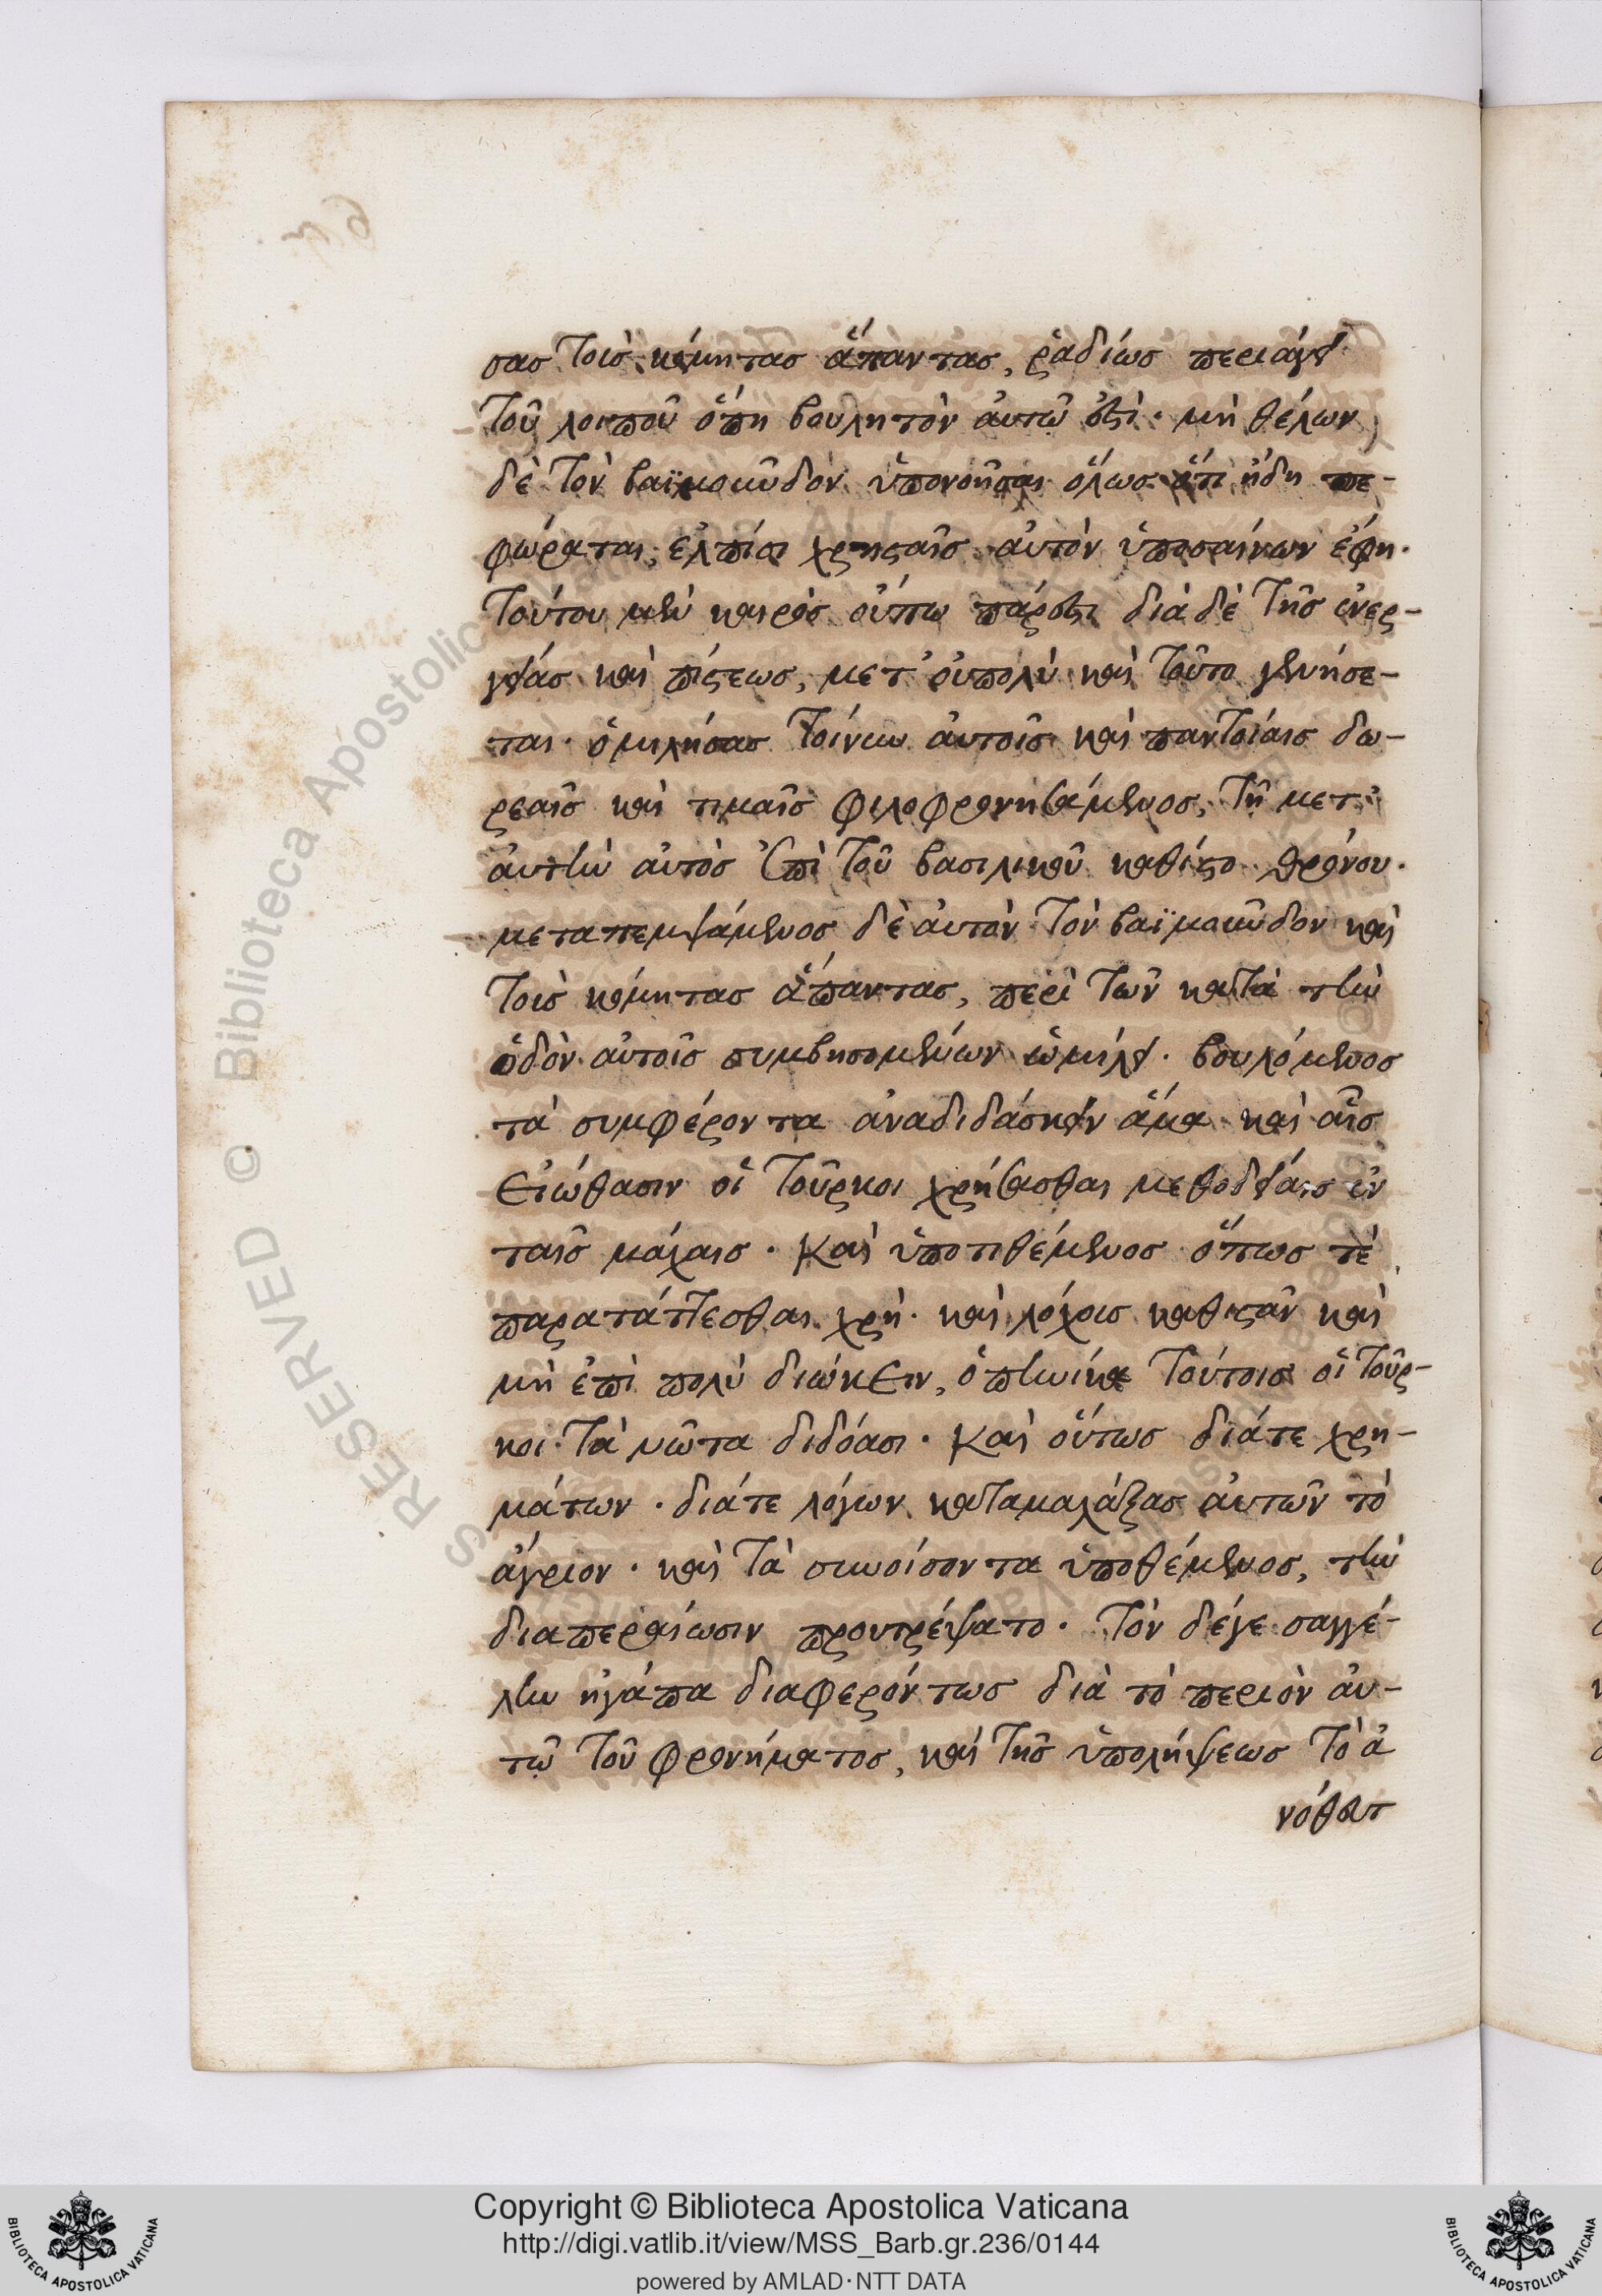 σας τοὺς κόμητας ἅπαντας, ῥαδίως περιάγει
τοῦ λοιποῦ ὅπη βουλητὸν αὐτῷ ἐστί· μὴ θέλων
δὲ τὸν βαϊμοῦνδον ὑπονοῆσαι ὅλως ὅτι ἤδη πε-
φώραται, ἐλπίσι χρησταῖς αὐτὸν ὑποσαίνων ἔφη·
τούτου μὲν καιρὸς οὔπω πάρεστι διὰ δὲ τῆς ἐνερ-
γείας καὶ πίστεως, μετ' οὐπολὺ καὶ τοῦτο γενήσε-
ται· ὁμιλήσας τοίνυν αὐτοῖς καὶ παντοίαις δω-
ρεαῖς καὶ τιμαῖς φιλοφρονησάμενος, τῇ μετ'
αὐτὴν αὐτὸς ἐπὶ τοῦ βασιλικοῦ καθίστο θρόνου·
μεταπεμψάμενος δὲ αὐτὸν τὸν βαϊμοῦνδον καὶ
τοὺς κόμητας ἅπαντας, περὶ τῶν κατὰ τὴν
ὁδὸν αὐτοῖς συμβησομένων ὡμίλει· βουλόμενος
τὰ συμφέροντα ἀναδιδάσκειν ἅμα καὶ αἷς
εἰώθασιν οἱ Τοῦρκοι χρήσασθαι μεθοδείαις ἐν
ταῖς μάχαις· καὶ ὑποτιθέμενος ὅπως τὲ
παρατάττεσθαι χρὴ· καὶ λόχους καθιστᾶν καὶ
μὴ ἐπὶ πολὺ διώκειν, ὁπηνίκα τούτοις οἱ Τοῦρ-
κοι τὰ νῶτα διδόασι· καὶ οὕτως διάτε χρη-
μάτων· διάτε λόγων καταμαλάξας αὐτῶν τὸ
ἄγριον· καὶ τὰ συνοίσοντα ὑποθέμενος, τὴν
διαπεραίωσιν προυτρέψατο· τὸν δέγε σαγγέ-
λην ἠγάπα διαφερόντως διὰ τὸ περιὸν αὐ-
τῷ τοῦ φρονήματος, καὶ τῆς ὑπολήψεως τὸ ἀ
νόθευτ
Copyright © Biblioteca Apostolica Vaticana
http://digi.vatlib.it/view/MSS_Barb.gr.236/0144
powered by AMLAD·NTT DATA
BIBLIOTECA APOSTOLICA VATICANA
BIBLIOTECA APOSTOLICA VATICANA